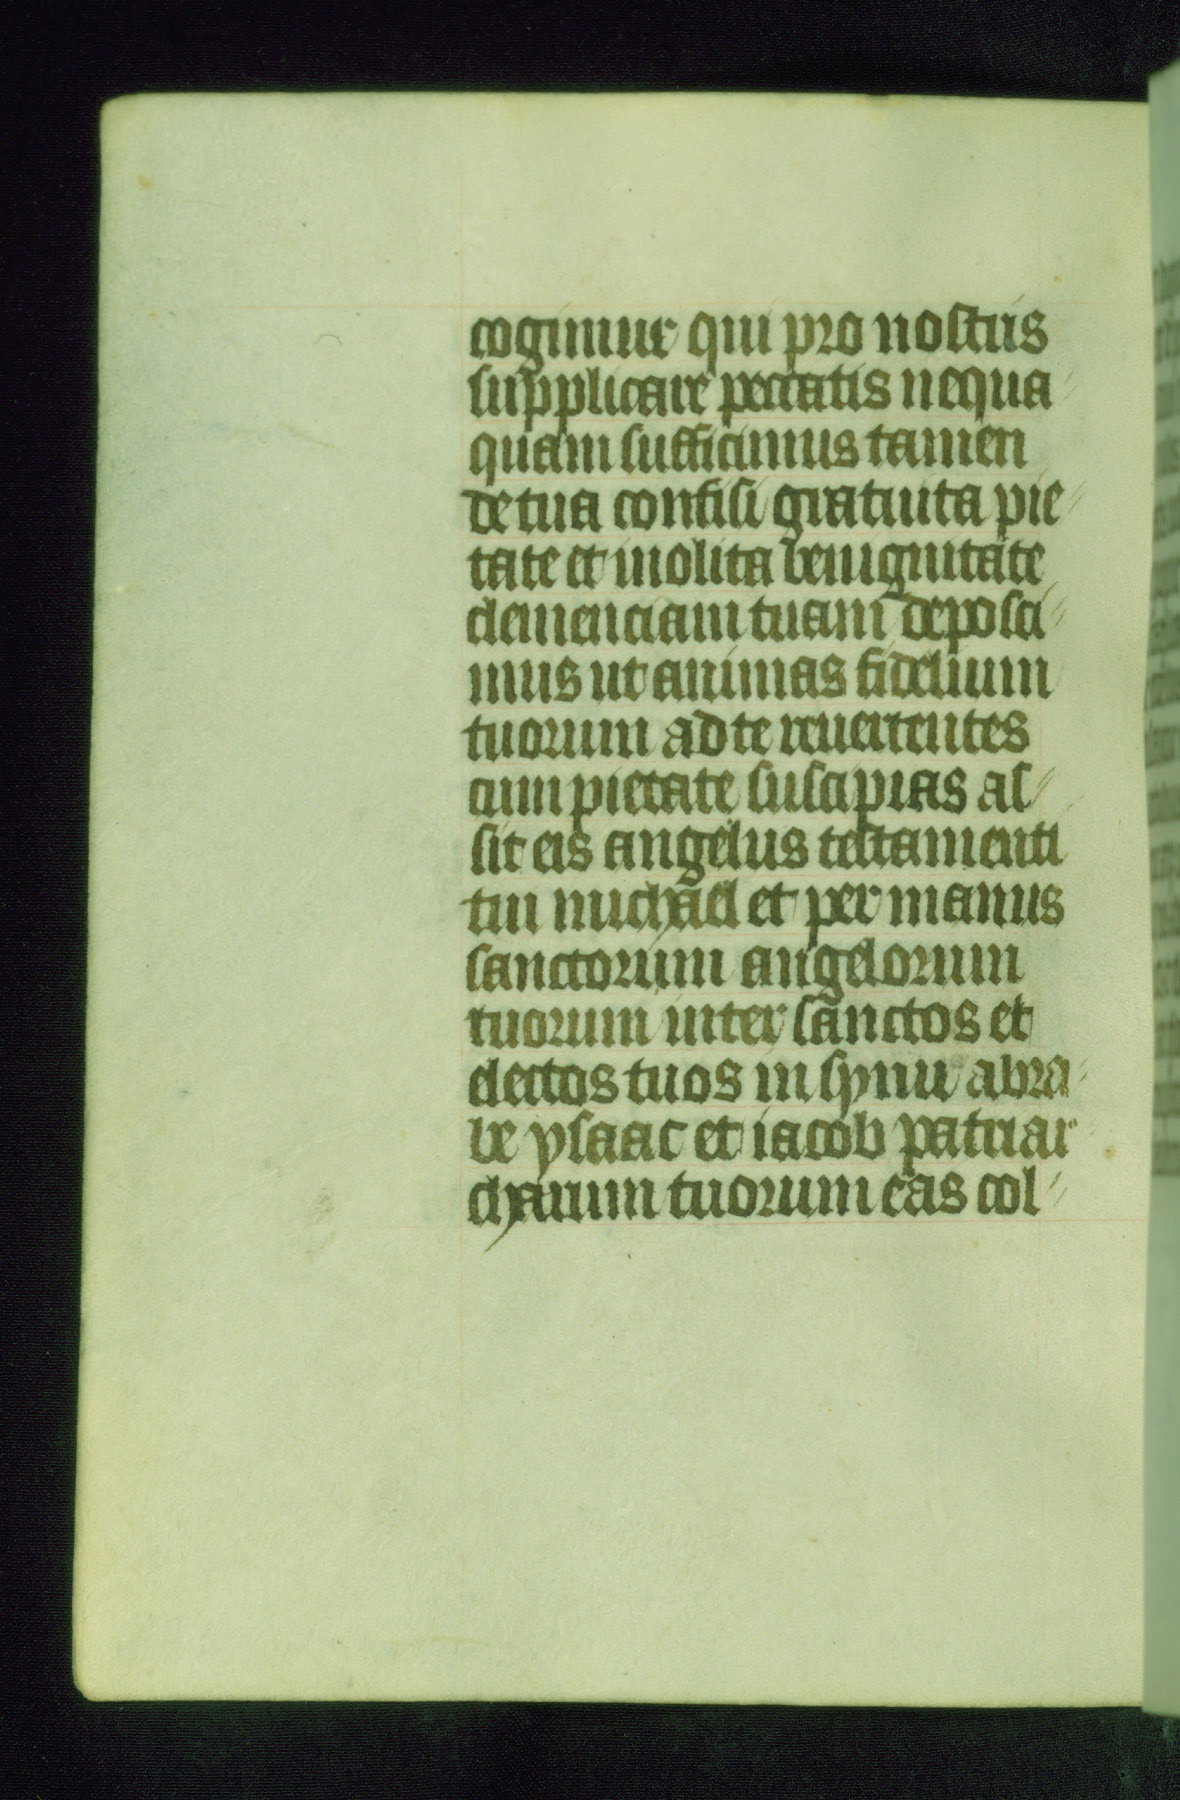 cogimur qui pro nostris
supplicare peccatis nequa
quam sufficimus tamen
de tua confisi gratuita pie
tate et inolita benignitate
clemenciam tuam deposci
mus ut animas fidelium
tuorum ad te reuertentes
cum pietate suscipias as
sit eis angelus testamenti
tui michael et per manus
sanctorum angelorum
tuorum inter sanctos et
electos tuos in synu abra
he ysaac et iacob patriar
charum tuorum eas col